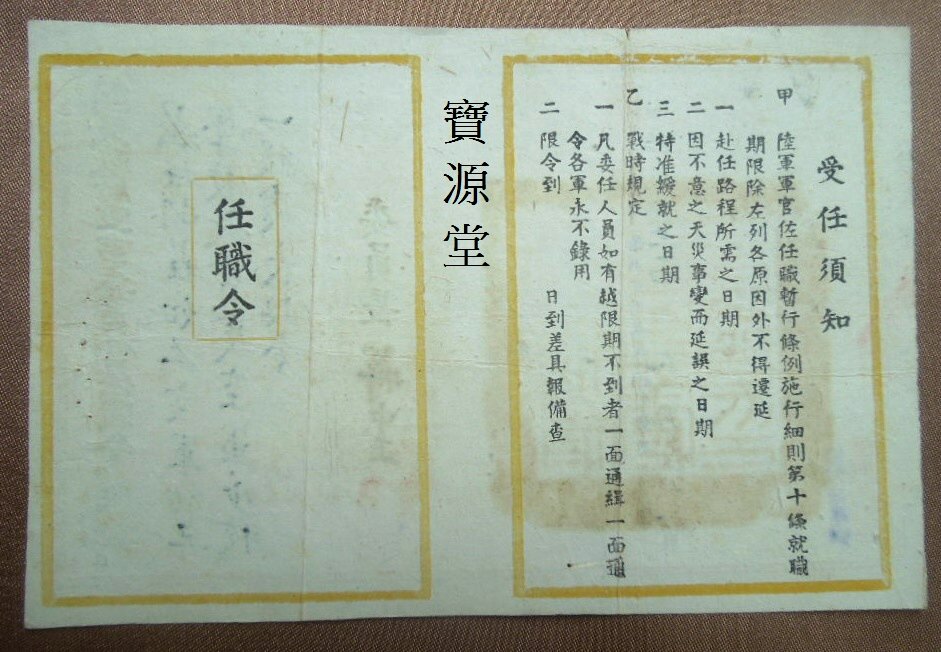 受任須知
甲 陸軍軍官佐任職暫行條例施行細則第十條就職
期限除左列各原因外不得遷延
一 赴任路程所需之日期
二 因不意之天災事變而延誤之日期
三 特准緩就之日期
乙 戰時規定
一 凡委任人員如有越限期不到者一面通緝一面通
令各軍永不錄用
二 限令到 日到差具報備查
寶源堂
任職令